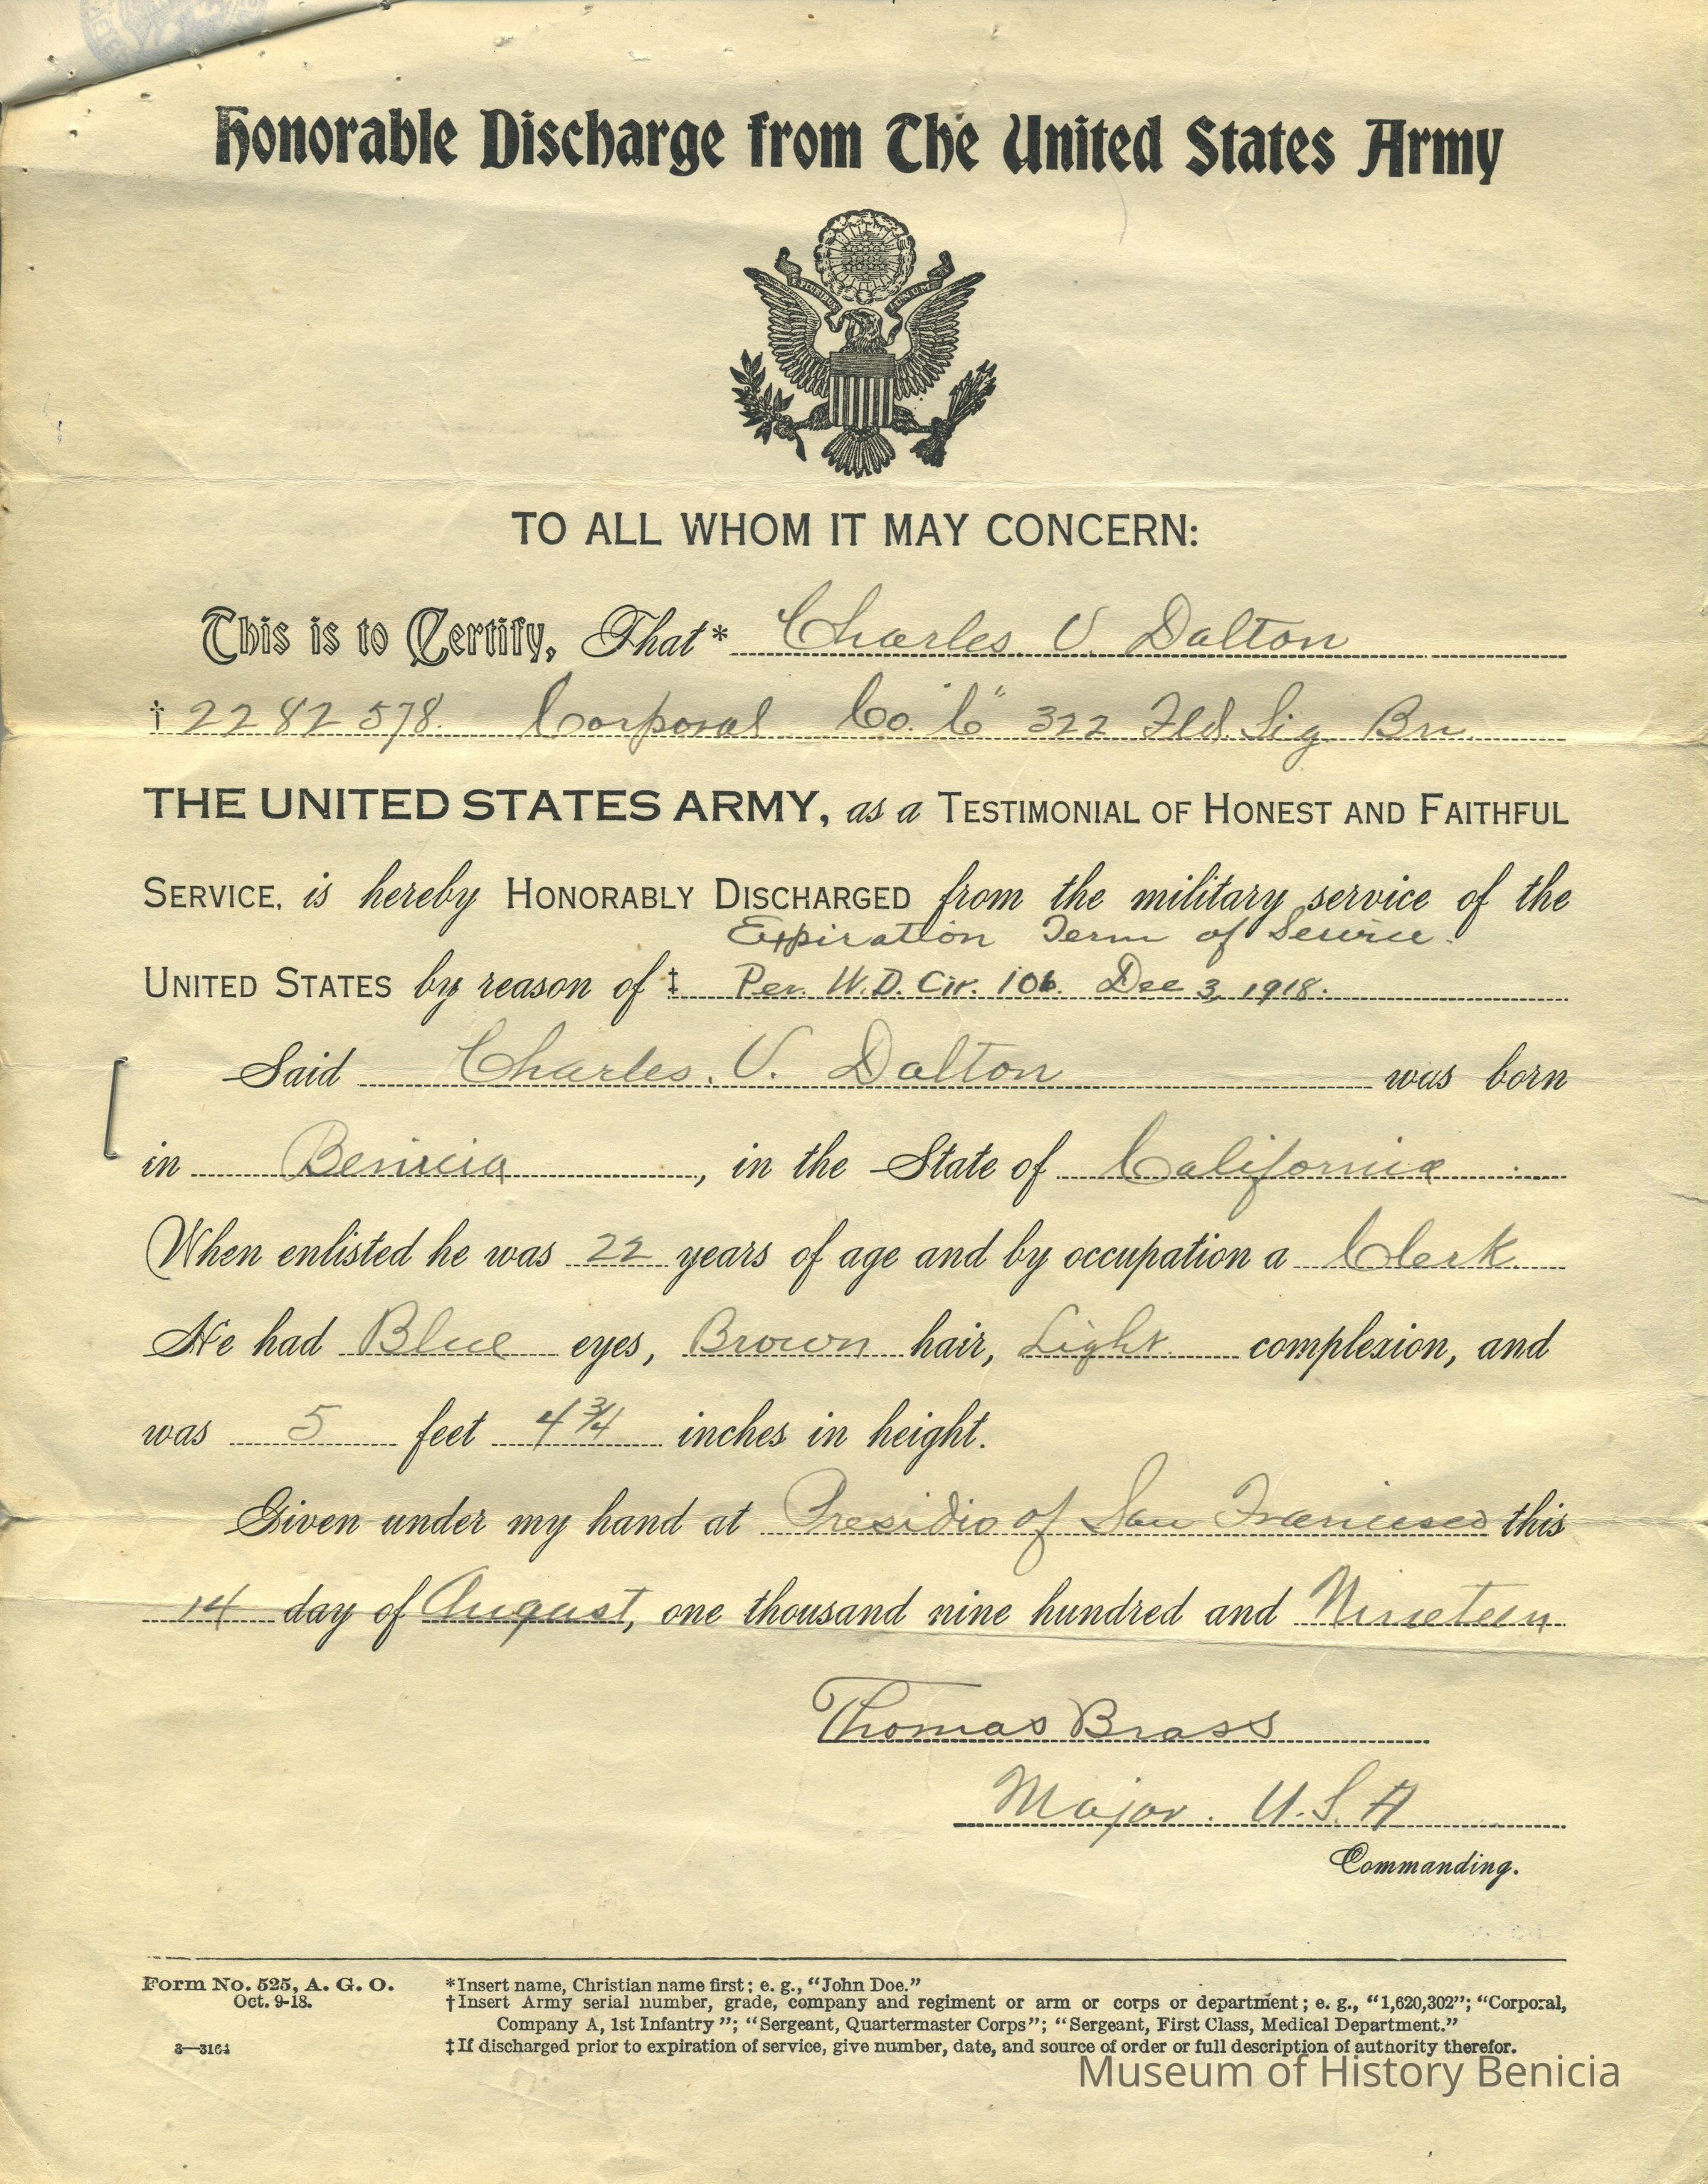 Honorable Discharge from The United States Army
E PLURIBUS UNUM
TO ALL WHOM IT MAY CONCERN:
This is to Certify, That* Charles. V. Dalton
† 2282578. Corporal Co. "C" 322 Fld. Sig. Bn.
THE UNITED STATES ARMY, as a TESTIMONIAL OF HONEST AND FAITHFUL
SERVICE, is hereby HONORABLY DISCHARGED from the military service of the
Expiration Term of Service.
UNITED STATES by reason of ‡ Per. W.D. Cir. 106. Dec 3, 1918.
Said Charles. V. Dalton was born
in Benicia, in the State of California
When enlisted he was 22 years of age and by occupation a Clerk
He had Blue eyes, Brown hair, Light complexion, and
was 5 feet 4 3/4 inches in height.
Given under my hand at Presidio of San Francisco this
14 day of August, one thousand nine hundred and Nineteen
Thomas Brass
Major. U.S.A
Commanding.
Form No. 525, A. G. O.
Oct. 9-18.
3—3164
*Insert name, Christian name first; e. g., "John Doe."
†Insert Army serial number, grade, company and regiment or arm or corps or department; e. g., "1,620,302"; "Corporal,
Company A, 1st Infantry"; "Sergeant, Quartermaster Corps"; "Sergeant, First Class, Medical Department."
‡If discharged prior to expiration of service, give number, date, and source of order or full description of authority therefor.
Museum of History Benicia